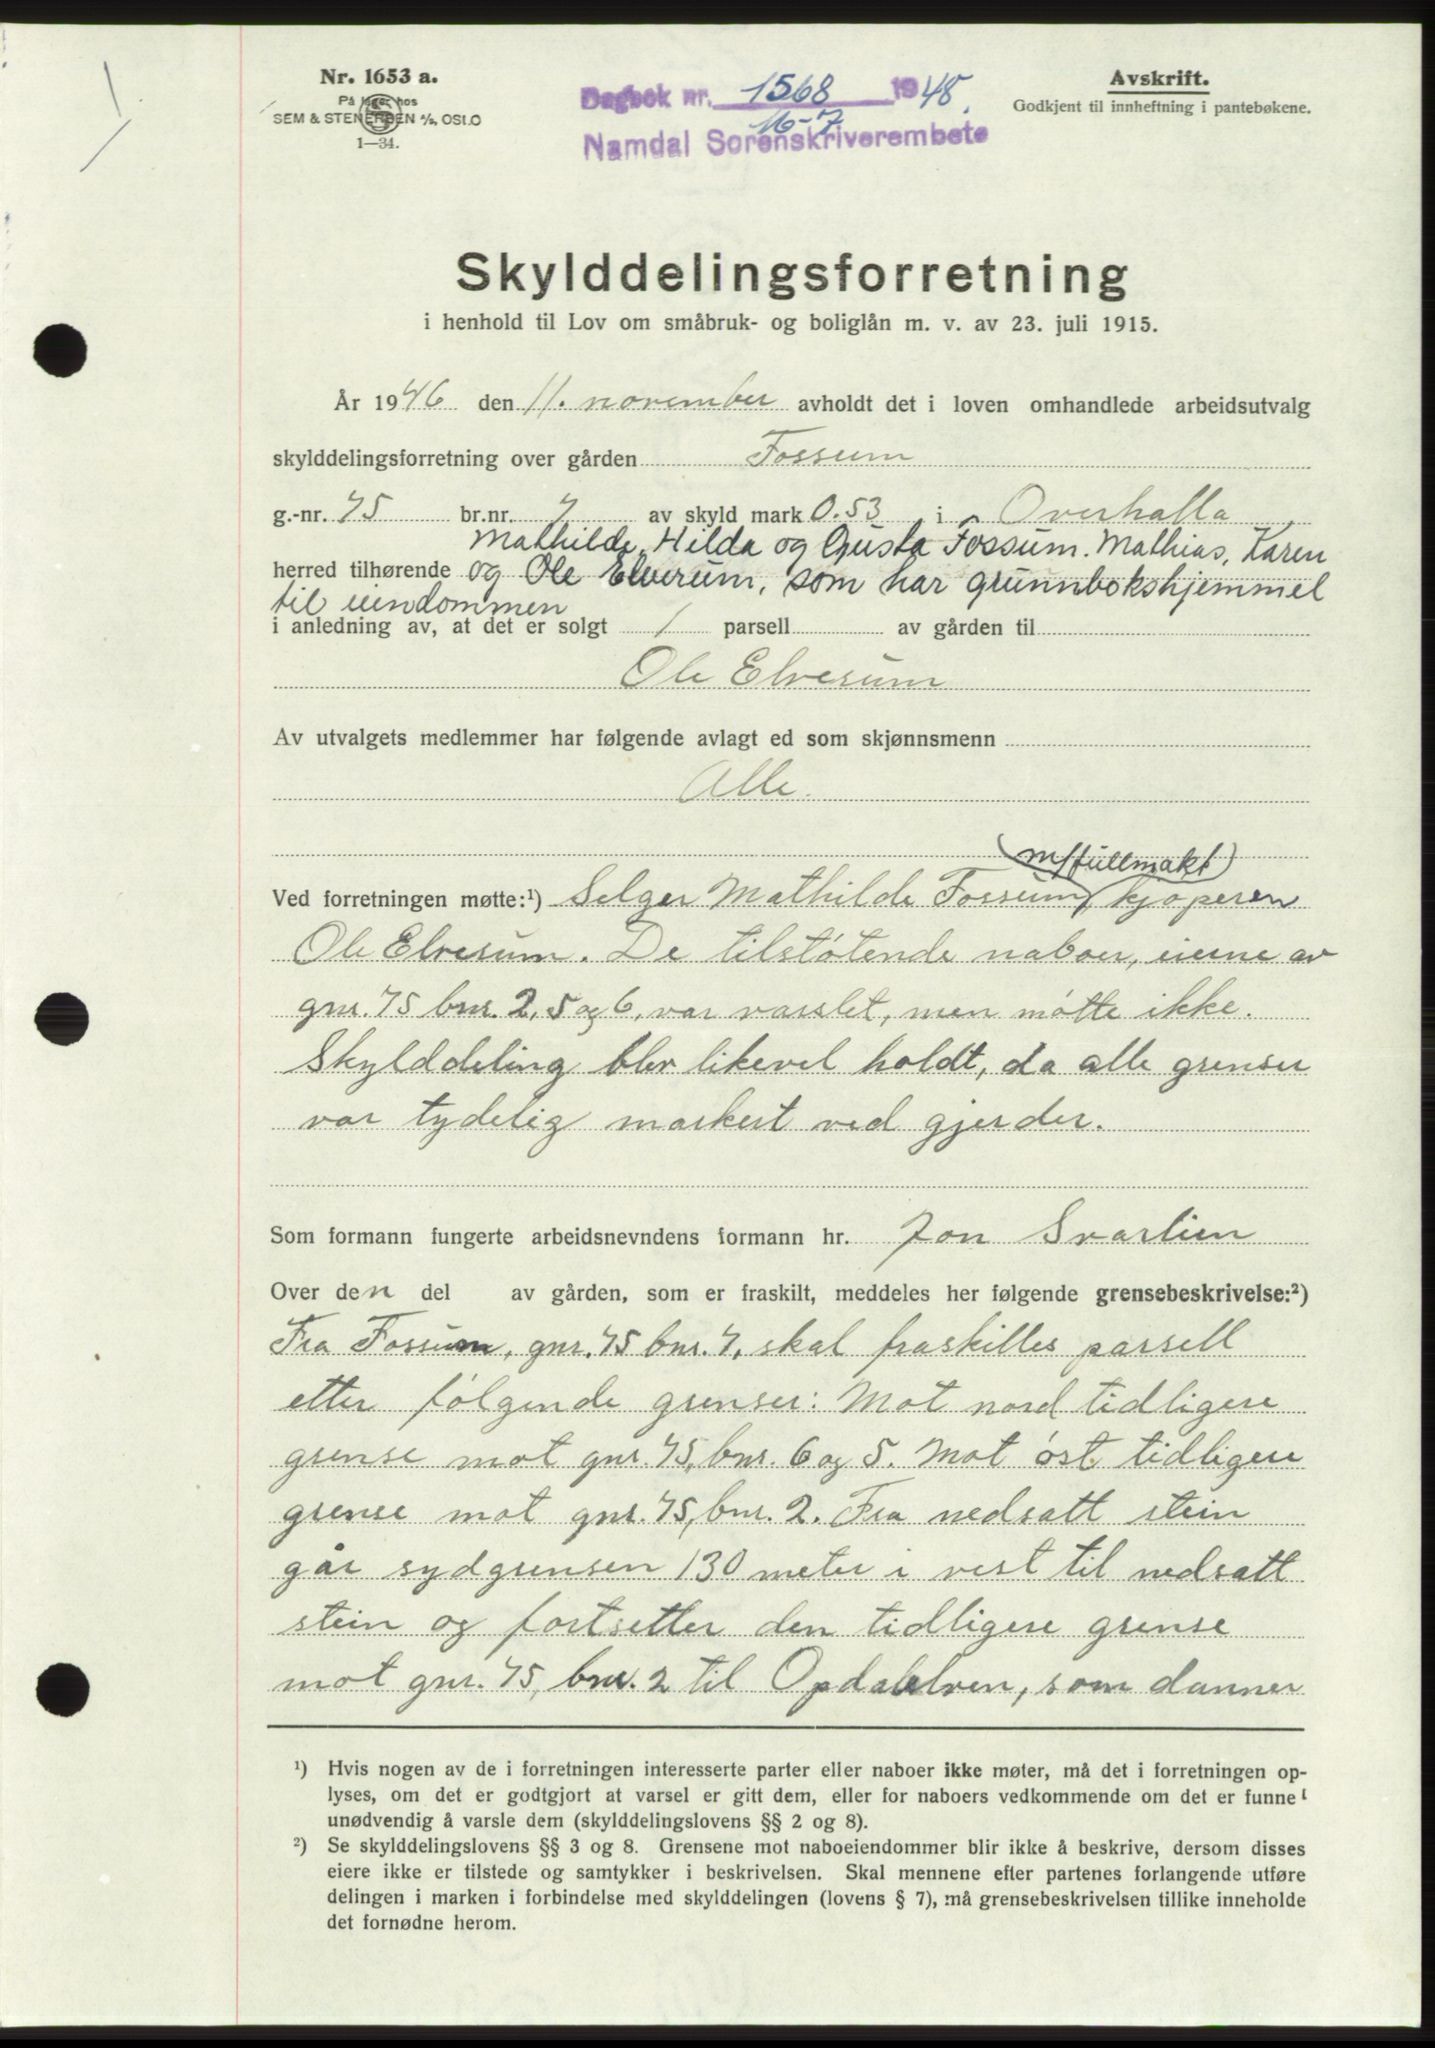 Nr. 1653 a.
På lager hos
SEM & STENERSEN A/S, OSLO
1—34.
Dagbok nr. 1568 1948.
16-7
Namdal Sorenskriverembete
Avskrift.
Godkjent til innheftning i pantebøkene.
Skylddelingsforretning
i henhold til Lov om småbruk- og boliglån m. v. av 23. juli 1915.
År 1946 den 11. november avholdt det i loven omhandlede arbeidsutvalg
skylddelingsforretning over gården Fossum
g.-nr. 75 br.nr. 7 av skyld mark 0.53 i Overhalla
Mathilde, Hilda og Gusta Fossum. Mathias, Karen
herred tilhørende og Ole Elverum, som har grunnbokshjemmel
til eiendommen
i anledning av, at det er solgt 1 parsell av gården til
Ole Elverum
Av utvalgets medlemmer har følgende avlagt ed som skjønnsmenn
Alle.
(m/fullmakt)
Ved forretningen møtte:¹) Selger Mathilde Fossum, kjøperen
Ole Elverum. De tilstøtende naboer, eierne av
gnr. 75 bnr. 2, 5 og 6, var varslet, men møtte ikke.
Skylddeling blev likevel holdt, da alle grenser
var tydelig markert ved gjerder.
Som formann fungerte arbeidsnevndens formann hr. Jon Svarlien
Over den del av gården, som er fraskilt, meddeles her følgende grensebeskrivelse:²)
Fra Fossum, gnr. 75 bnr. 7, skal fraskilles parsell
etter følgende grenser: Mot nord tidligere
grense mot gnr. 75, bnr. 6 og 5. Mot øst tidligere
grense mot gnr. 75, bnr. 2. Fra nedsatt stein
går sydgrensen 130 meter i vest til nedsatt
stein og fortsetter den tidligere grense
mot gnr. 75, bnr. 2 til Opdalelven, som danner
¹) Hvis nogen av de i forretningen interesserte parter eller naboer ikke møter, må det i forretningen op-
lyses, om det er godtgjort at varsel er gitt dem, eller for naboers vedkommende om det er funnet
unødvendig å varsle dem (skylddelingslovens §§ 2 og 8).
²) Se skylddelingslovens §§ 3 og 8. Grensene mot naboeiendommer blir ikke å beskrive, dersom disses
eiere ikke er tilstede og samtykker i beskrivelsen. Skal mennene efter partenes forlangende utføre
delingen i marken i forbindelse med skylddelingen (lovens § 7), må grensebeskrivelsen tillike inneholde
det fornødne herom.